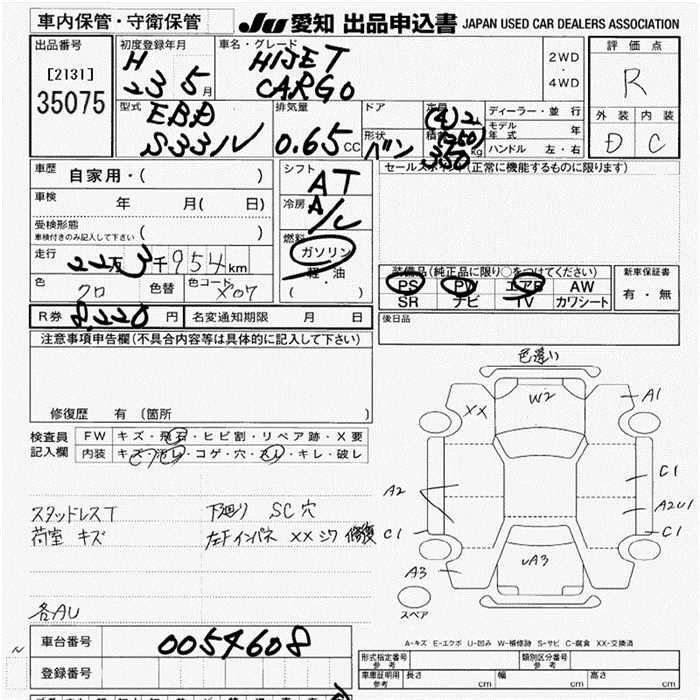 車内保管・守衛保管
JU 愛知 出品申込書 JAPAN USED CAR DEALERS ASSOCIATION
出品番号
[2131]
35075
初度登録年月
H
23 5月
車名・グレード
HIJET
CARGO
2WD
・
4WD
評価点
R
外装 内装
D C
型式
EBD
S331V
排気量
0.65cc
ドア
形状
バン
定員
(4)2
積載
(250)
350kg
ディーラー・並行
モデル年式 年
ハンドル 左・右
車歴
自家用・( )
車検
年 月( 日)
受検形態
車検付きのみ記入して下さい ( )
走行
22万3千954km
色
クロ
色替
色コード
X07
R券 8,220円
名変通知期限 月 日
シフト
AT
冷房
A/C
燃料
ガソリン
軽・油
( )
セールスポイント(正常に機能するものに限ります)
装備品(純正品に限り○をつけてください)
PS PW エアB AW
SR ナビ TV カワシート
新車保証書
有・無
後日品
注意事項申告欄(不具合内容等は具体的に記入して下さい)
修復歴 有 (箇所 )
検査員
記入欄
FW キズ・飛石・ヒビ割・リペア跡・X要
内装 キズ・汚レ・コゲ・穴・スレ・キレ・破レ
スタッドレスT
荷室 キズ
下廻り SC穴
左Fインパネ XX シワ 修復
各AU
色違い
W2
XX
A1
A2
C1
A2U1
C1
C1
A3
UA3
スペア
A-キズ E-エクボ U-凹み W-補修跡 S-サビ C-腐食 XX-交換済
車台番号 0054608
登録番号
形式指定番号
参考
類別区分番号
参考
車庫証明用
参考
長さ cm
幅 cm
高さ cm